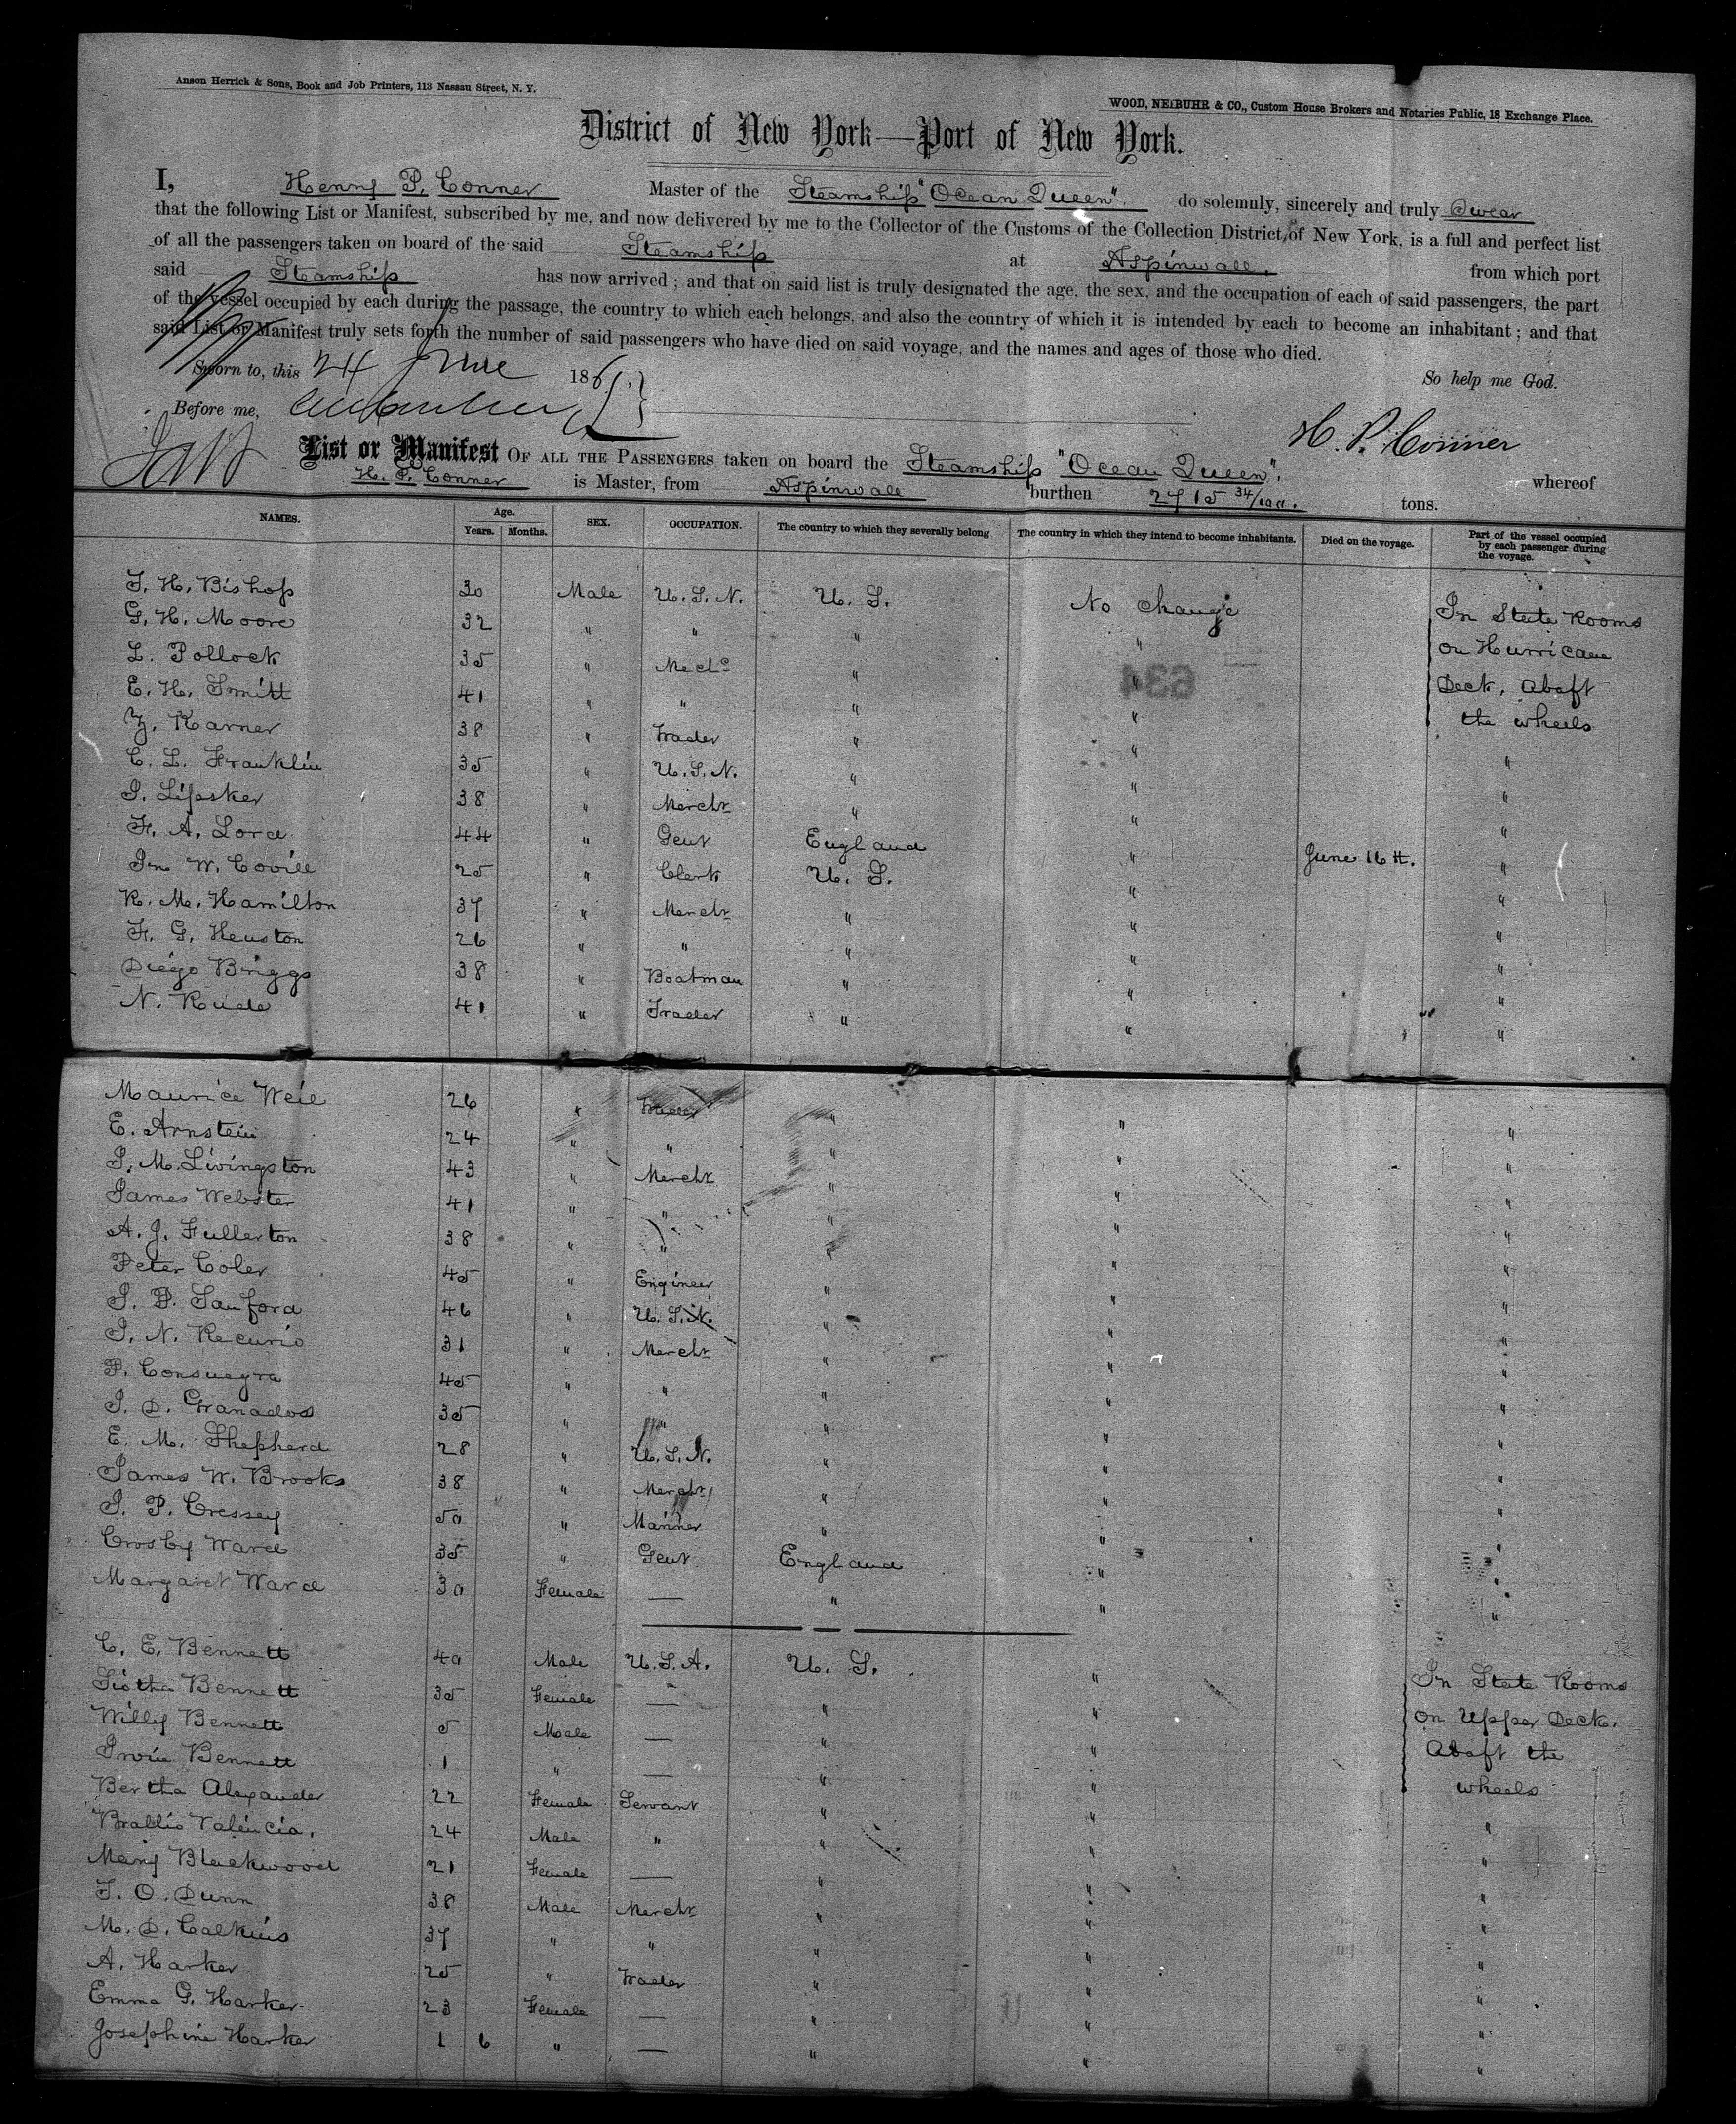 Anson Herrick & Sons, Book and Job Printers, 113 Nassau Street, N. Y.
WOOD, NEIBUHR & CO., Custom House Brokers and Notaries Public, 18 Exchange Place.
District of New York—Port of New York.
I, Henry P. Conner Master of the Steamship "Ocean Queen". do solemnly, sincerely and truly Swear
that the following List or Manifest, subscribed by me, and now delivered by me to the Collector of the Customs of the Collection District, of New York, is a full and perfect list
of all the passengers taken on board of the said Steamship at Aspinwall. from which port
said Steamship has now arrived; and that on said list is truly designated the age, the sex, and the occupation of each of said passengers, the part
of the vessel occupied by each during the passage, the country to which each belongs, and also the country of which it is intended by each to become an inhabitant; and that
said List or Manifest truly sets forth the number of said passengers who have died on said voyage, and the names and ages of those who died.
Sworn to, this 24 June 186 So help me God.
Before me,
H. P. Conner
List or Manifest OF ALL THE PASSENGERS taken on board the Steamship "Ocean Queen". whereof
H. P. Conner is Master, from Aspinwall burthen 2715 34/100. tons.
NAMES. Age. Years. Months. SEX. OCCUPATION. The country to which they severally belong The country in which they intend to become inhabitants. Died on the voyage. Part of the vessel occupied by each passenger during the voyage.
J. H. Bishop 30 Male U.S.N. U. S. No change In State Rooms
G. H. Moore 32 " " " " on Hurricane
L. Pollock 35 " Mech.c " " Deck, Abaft
E. H. Smitt 41 " " " " the wheels
Z. Karner 38 " Trader " " "
C. L. Franklin 35 " U.S.N. " " "
I. Lipsker 38 " Mercht " " "
F. A. Lord 44 " Gent England " June 16th. "
Jno W. Covill 25 " Clerk U. S. " "
R. M. Hamilton 37 " Mercht " " "
F. G. Heuston 26 " " " " "
Diego Briggs 38 " Boatman " " "
N. Ruede 41 " Trader " " "
Maurice Weil 26 " Trader " " "
E. Arnstein 24 " " " " "
J. M. Livingston 43 " Mercht " " "
James Webster 41 " " " " "
A. J. Fullerton 38 " " " " "
Peter Coler 45 " Engineer " " "
J. P. Sanford 46 " U.S.N. " " "
J. N. Recurio 31 " Mercht " " "
P. Consuegra 45 " " " " "
J. D. Granados 35 " " " " "
E. M. Shepherd 28 " U.S.N. " " "
James W. Brooks 38 " Mercht " " "
J. P. Cressey 50 " Mariner " " "
Crosby Ward 35 " Gent England " "
Margaret Ward 30 Female — " " "
C. E. Bennett 40 Male U.S.A. U. S. " In State Rooms
Bennett 35 Female — " " on Upper Deck.
Willy Bennett 5 Male — " " Abaft the
Irvin Bennett 1 " — " " wheels
Bertha Alexander 22 Female Servant " " "
Brallio Valencia. 24 Male " " " "
Mary Blackwood 21 Female — " " "
J. O. Dunn 38 Male Mercht " " "
M. D. Calkins 37 " " " " "
A. Harker 25 " Trader " " "
Emma G. Harker 23 Female — " " "
Josephine Harker 1 6 " — " " "
634